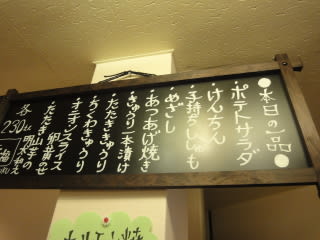 ●本日の一品●
・ポテトサラダ
・けんちん
・子持ちししゃも
・めざし
・あつあげ焼き
・きゅうり一本漬け
・たたききゅうり
・ちくわきゅうり
・オニオンスライス
卵黄のせ
・たたき山芋の
明太和え
各230